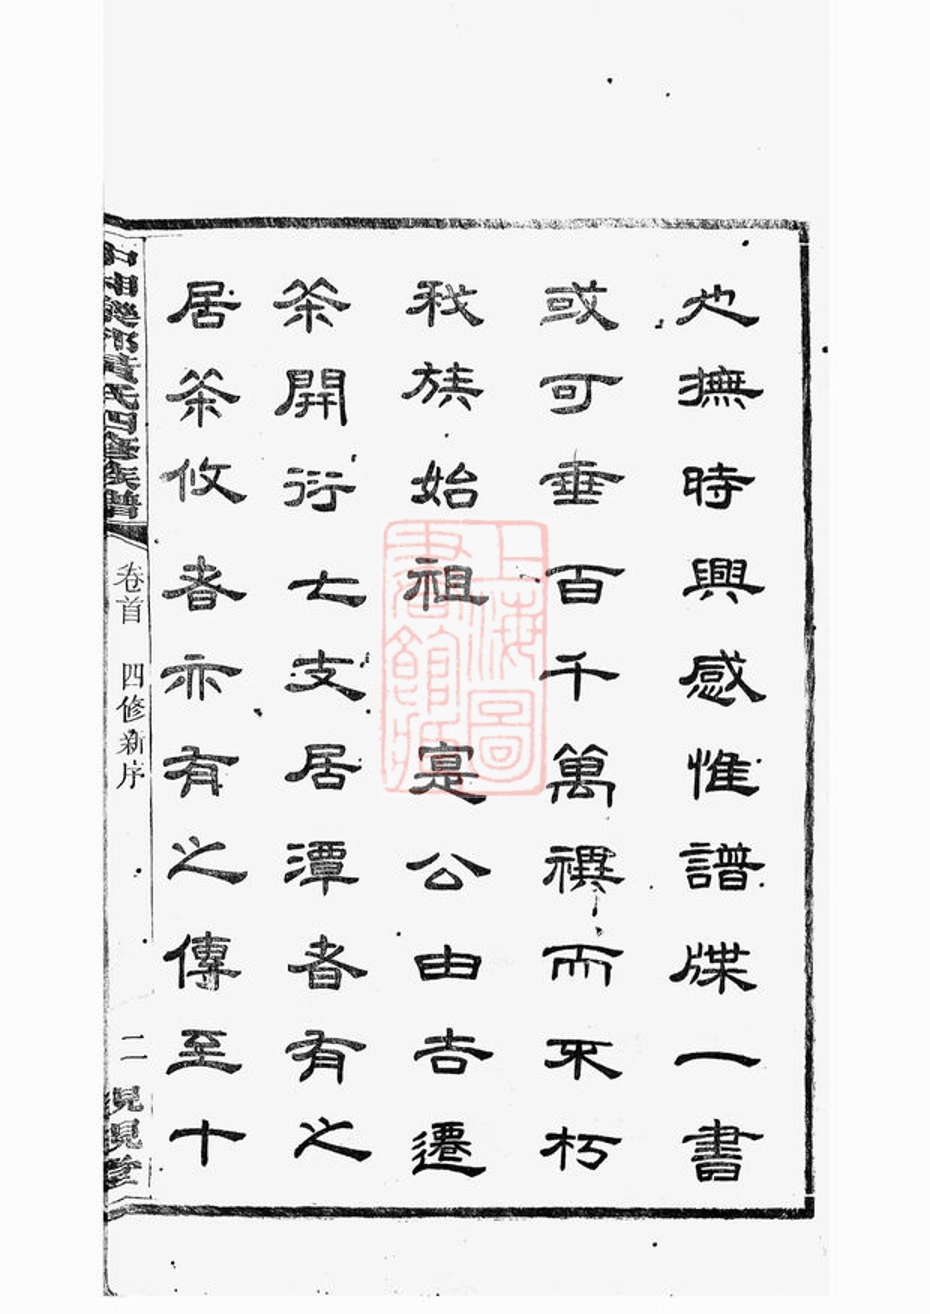 也撫時興感惟譜牒一書
或可垂百千萬禩而不朽
我族始祖寔公由吉遷
茶開衍七支居潭者有之
居茶攸者亦有之傳至十
氏四修族譜
卷首
四修新序
二
上海圖
書館藏